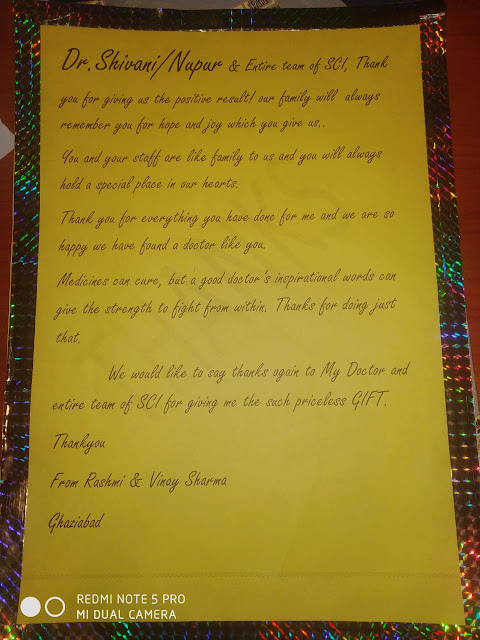 Dr.Shivani/Nupur & Entire team of SCI, Thank
you for giving us the positive result! our family will always
remember you for hope and joy which you give us..
You and your staff are like family to us and you will always
hold a special place in our hearts.
Thank you for everything you have done for me and we are so
happy we have found a doctor like you.
Medicines can cure, but a good doctor's inspirational words can
give the strength to fight from within. Thanks for doing just
that.
We would like to say thanks again to My Doctor and
entire team of SCI for giving me the such priceless GIFT.
Thankyou
From Rashmi & Vinay Sharma
Ghaziabad
REDMI NOTE 5 PRO
MI DUAL CAMERA